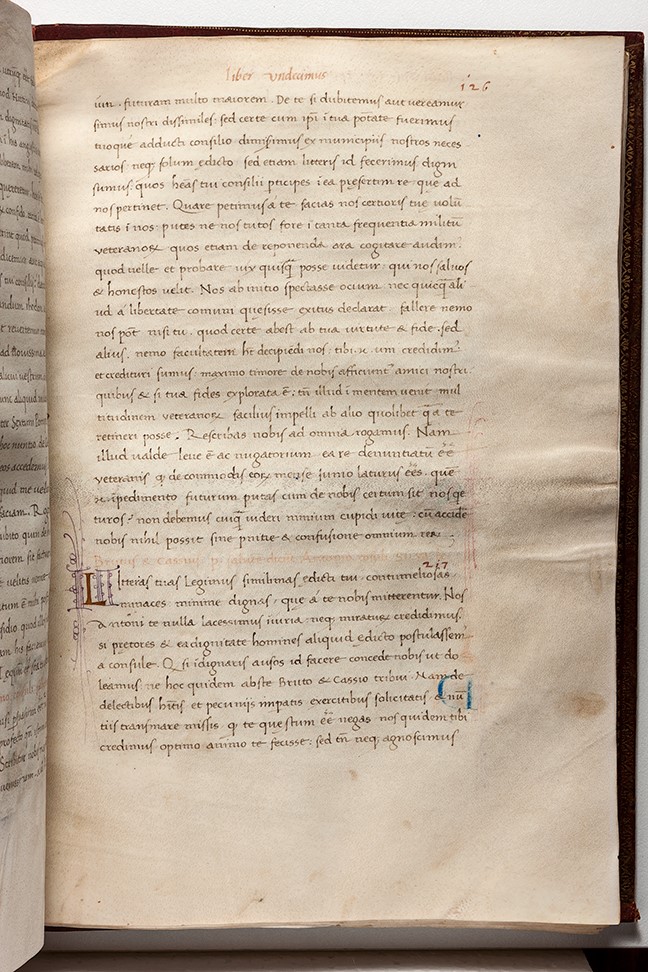 liber Vndecimus
126
iuri . futuram multo maiorem . De te si dubitemus aut vereamur
simus nostri dissimiles : sed certe cum ipsi i tua potate fuerimus
tuoque adducti consilio dimiserimus ex municipiis nostros neces
sarios neq solum edicto sed etiam litteris id fecerimus digni
sumus quos heas tui consilii pticipes i ea presertim re que ad
nos pertinet . Quare petimus a te facias nos certiores tue volun
tatis i nos : putes ne nos tutos fore i tanta frequentia militu
veteranor quos etiam de reponenda ara cogitare audim
quod velle et probare vix quisq posse videtur : qui nos saluos
& honestos velit . Nos ab initio spectasse ocium nec quicq ali
ud a libertate comuni quesisse exitus declarat fallere nemo
nos pot nisi tu . quod certe abest ab tua virtute & fide . sed
alius . nemo facultatem ht decipiedi nos : tibi . n . um credidim
et credituri sumus maximo timore de nobis afficiunt amici nostri
quibus & si tua fides explorata e : tn illud i mentem venit mul
titudinem veteranor facilius impelli ab alio quolibet q a te
retineri posse . Rescribas nobis ad omnia rogamus . Nam
illud valde leue e ac nugatorium ea re denuntiatu ee
veteranis q de commodis eor mense iunio laturus ees . que
n ipedimento futurum putas cum de nobis certum sit nos qe
turos : non debemus cuiq videri nimium cupidi vite : cu accide
nobis nihil possit sine pnitie & confusione omnium rer
Brutus & Cassius
217
Litteras tuas Legimus simillimas edicti tui . contumeliosas
minaces minime dignas , que a te nobis mitterentur . Nos
Antoni te nulla lacessimus iuria neq miratur credidimus .
si pretores & ea dignitate homines aliquid edicto postulassem
a consule . Q si idignaris ausos id facere concede nobis ut do
leamus ne hoc quidem abste Bruto & Cassio tribui . Nam de
delectibus hitis et pecuniis impatis exercitibus solicitatis & nu
tiis trans mare missis q te questum ee negas nos quidem tibi
credimus optimo animo te fecisse : sed tn neq agnoscimus